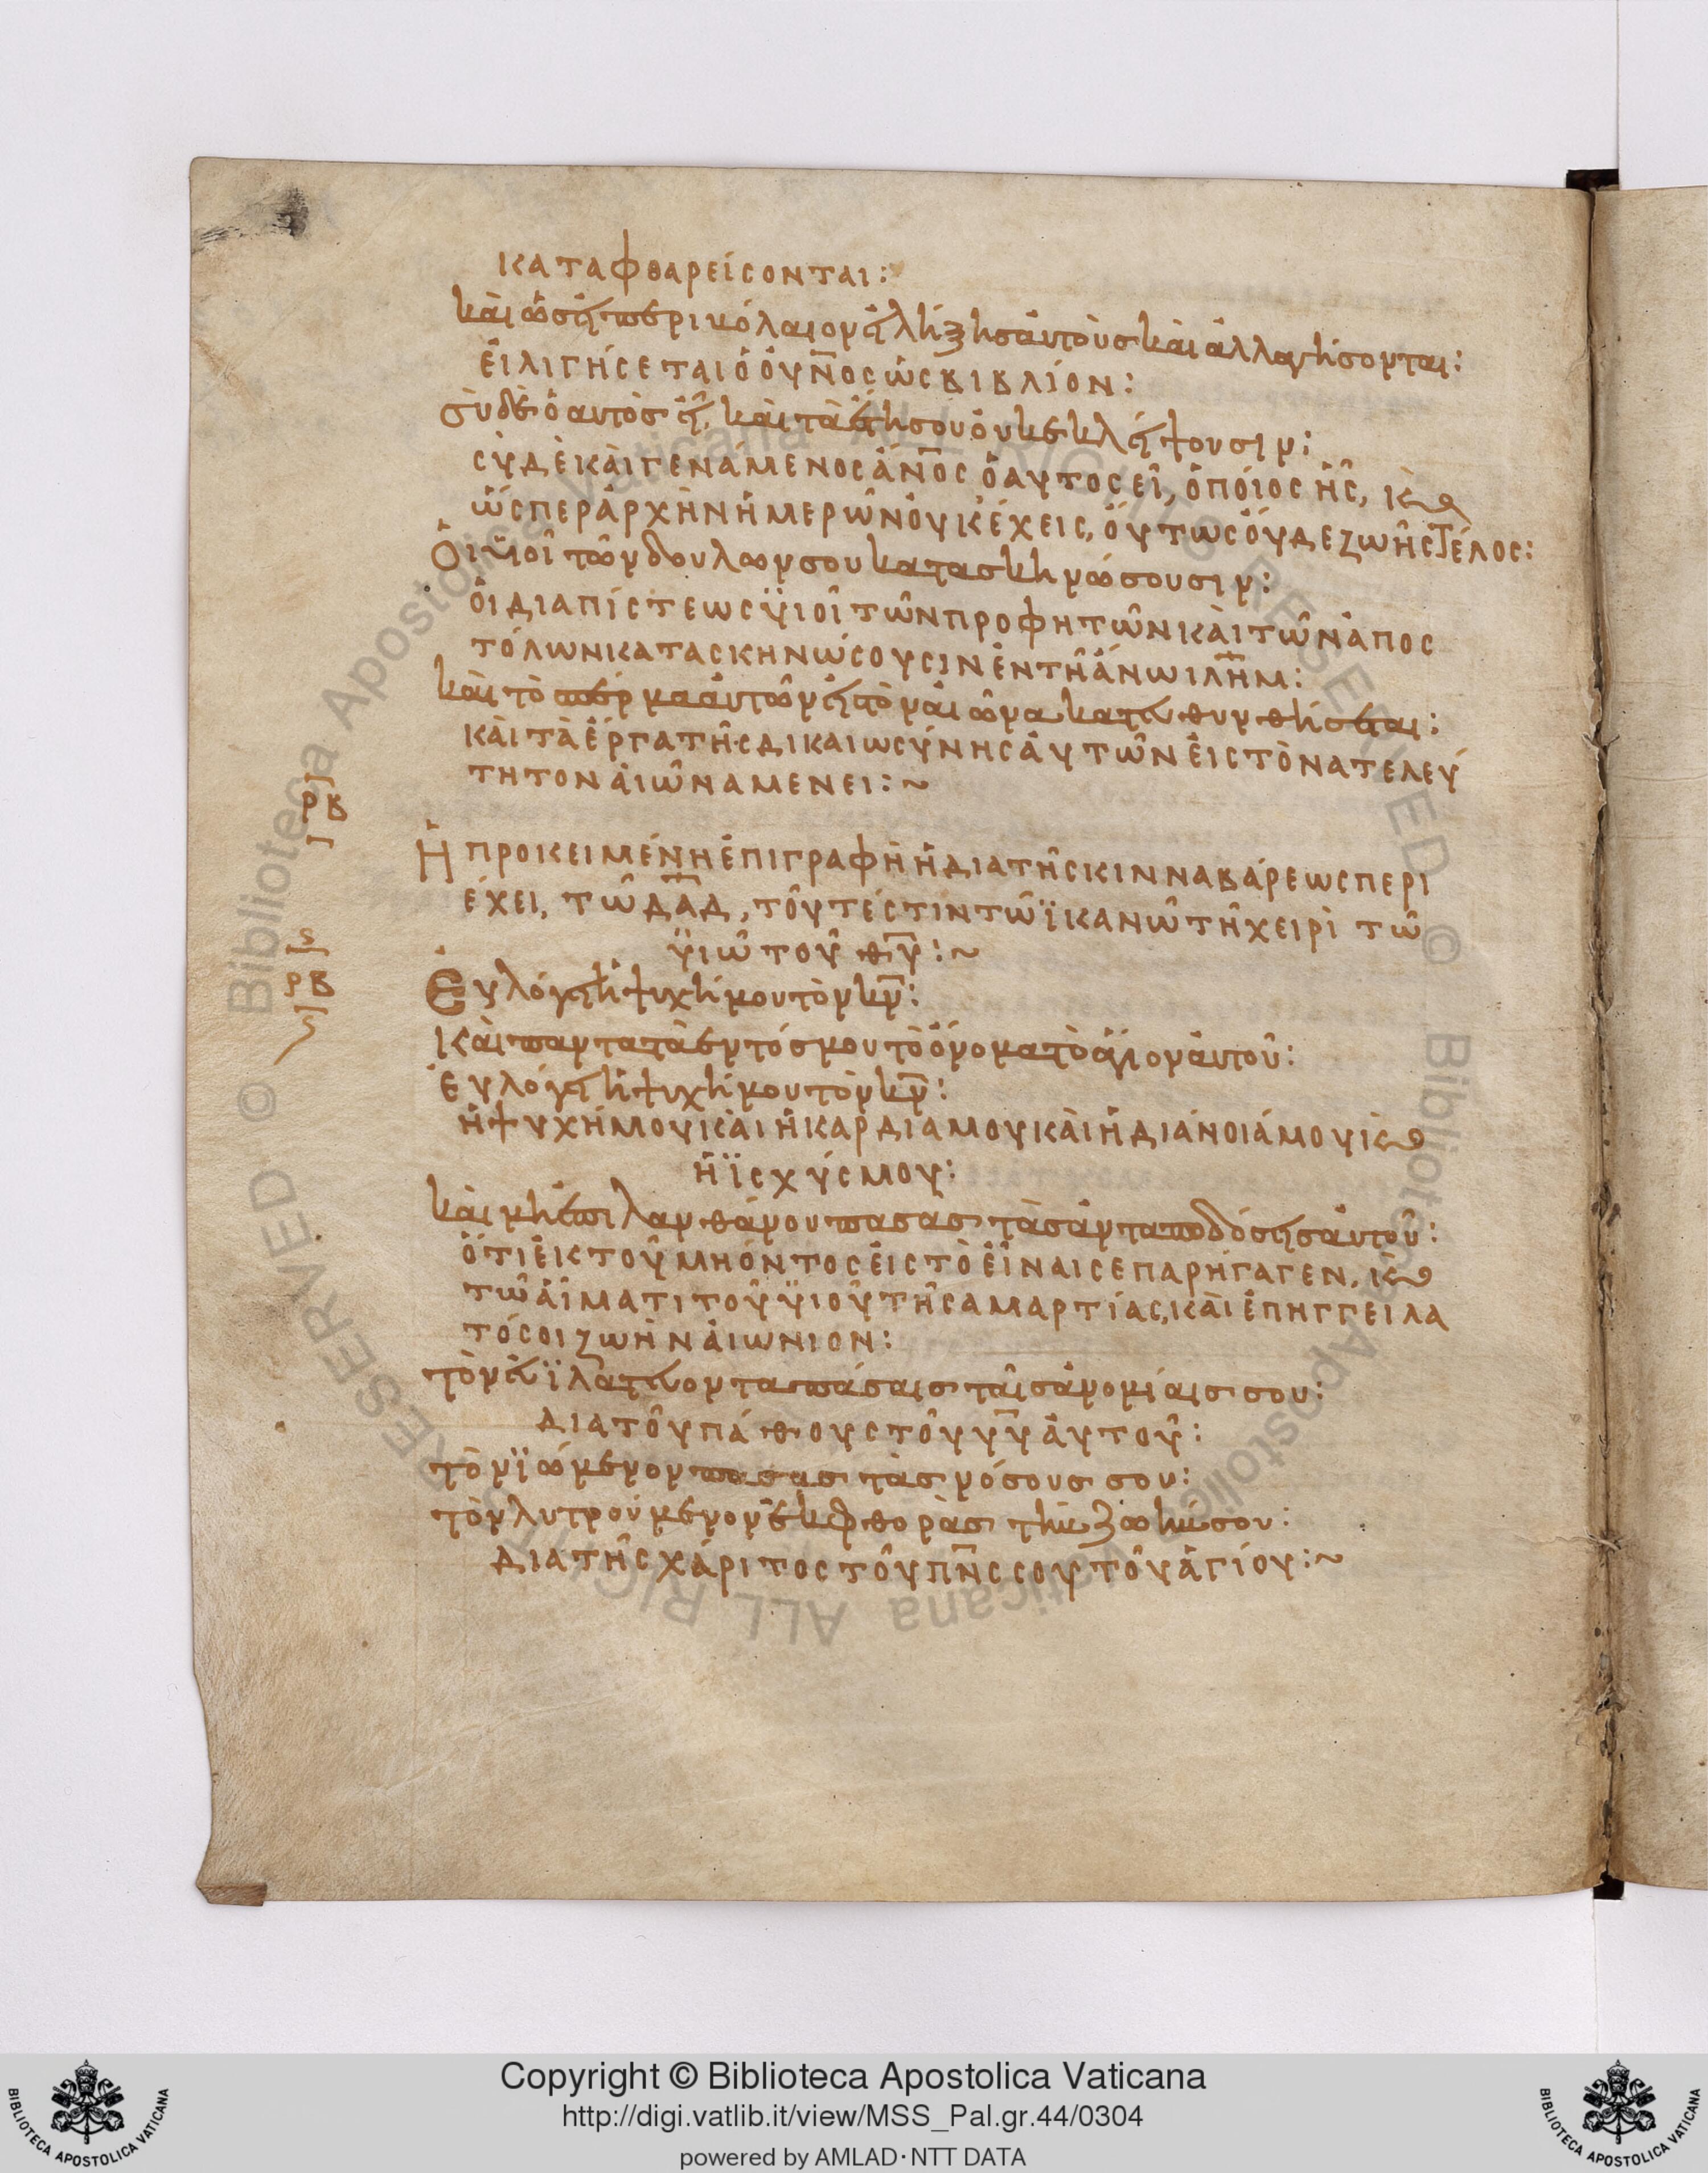 καταφθαρείσονται:
κὰι ὡσεὶ περικόλαιον ἑλίξησ ἀυτὸυσ κὰι ἀλλαγήσονται:
ἑιλιγήσεται ὁ ὀυν̅οσ ὡσ βιβλίον:
σὺ δὲ ὁ αυτὸσ εἶ, κὰι τὰ έτη σου ὀυκ εκλείψουσιν:
σὺ δὲ κὰι γενάμενοσ ἀν̅οσ ὁ αυτοσ εῖ, ὁπόιοσ ῆσ, κὲ
ὥσπερ ἀρχὴν ἡμερῶν ὀυκ έχεισ, ὅυτωσ ὀυδε ζωῆσ τέλοσ:
Ὁι υἱοὶ τῶν δουλων σου κατασκηνώσουσιν:
ὁι δια πίστεωσ ϋιοὶ τῶν προφητῶν κὰι τῶν ἀποσ
τόλων κατασκηνώσουσιν ἐν τῆ ἄνω ιλ̅η̅μ:
κὰι τὸ σπέρμα ἀυτῶν ἐισ τὸν ἀιῶνα κατευθυνθήσεται:
κὰι τὰ ἔργα τῆσ δικαιωσύνησ ἀυτῶν ἐισ τὸν ατελεύ
τητον ἀιῶνα μενει:~
ρβ
Ἡ προκειμένη ἐπιγραφὴ ἡ δια τῆσ κινναβάρεωσ περι
έχει, τῶ δ̅α̅δ, τοῦτέστιν τῶ ϊκανῶ τῆ χειρὶ τῶ
ϋιῶ τοῦ θ̅υ̅:~
ρβ
Ευλόγει ἡ ψυχή μου τὸν κ̅ν̅:
Κὰι παντα τὰ εντόσ μου τὸ ὄνομα τὸ ἅγιον ἀυτοῦ:
Ευλόγει ἡ ψυχή μου τὸν κ̅ν̅:
ἡ ψυχή μου κὰι ἡ καρδια μου κὰι ἡ διάνοιά μου κὲ
ἡ ϊσχύσ μου:
κὰι μὴ ἐπιλανθάνου πασασ τὰσ ἀνταποδόσεισ ἀυτοῦ:
ὅτι ἐικ τοῦ μη όντοσ ἐισ τὸ ἐῖναι σε παρήγαγεν, κὲ
τῶ ἁίματι τοῦ ϋιοῦ τῆσ αμαρτίασ, κὰι ἐπηγγειλα
τό σοι ζωὴν ἀιωνιον:
τὸν ἐυϊλατευοντα πάσαισ τᾶισ ἀνομίαισ σου:
δια τοῦ πάθουσ τοῦ υ̅υ̅ ἀυτοῦ:
τὸν ϊώμενον πασασ τὰσ νόσουσ σου:
τὸν λυτρούμενον ἐκ φθορὰσ τὴν ζωήν σου:
δια τῆσ χάριτοσ τοῦ πν̅σ σου τοῦ ἁγίου:~
Copyright © Biblioteca Apostolica Vaticana
http://digi.vatlib.it/view/MSS_Pal.gr.44/0304
powered by AMLAD·NTT DATA
BIBLIOTECA APOSTOLICA VATICANA
BIBLIOTECA APOSTOLICA VATICANA